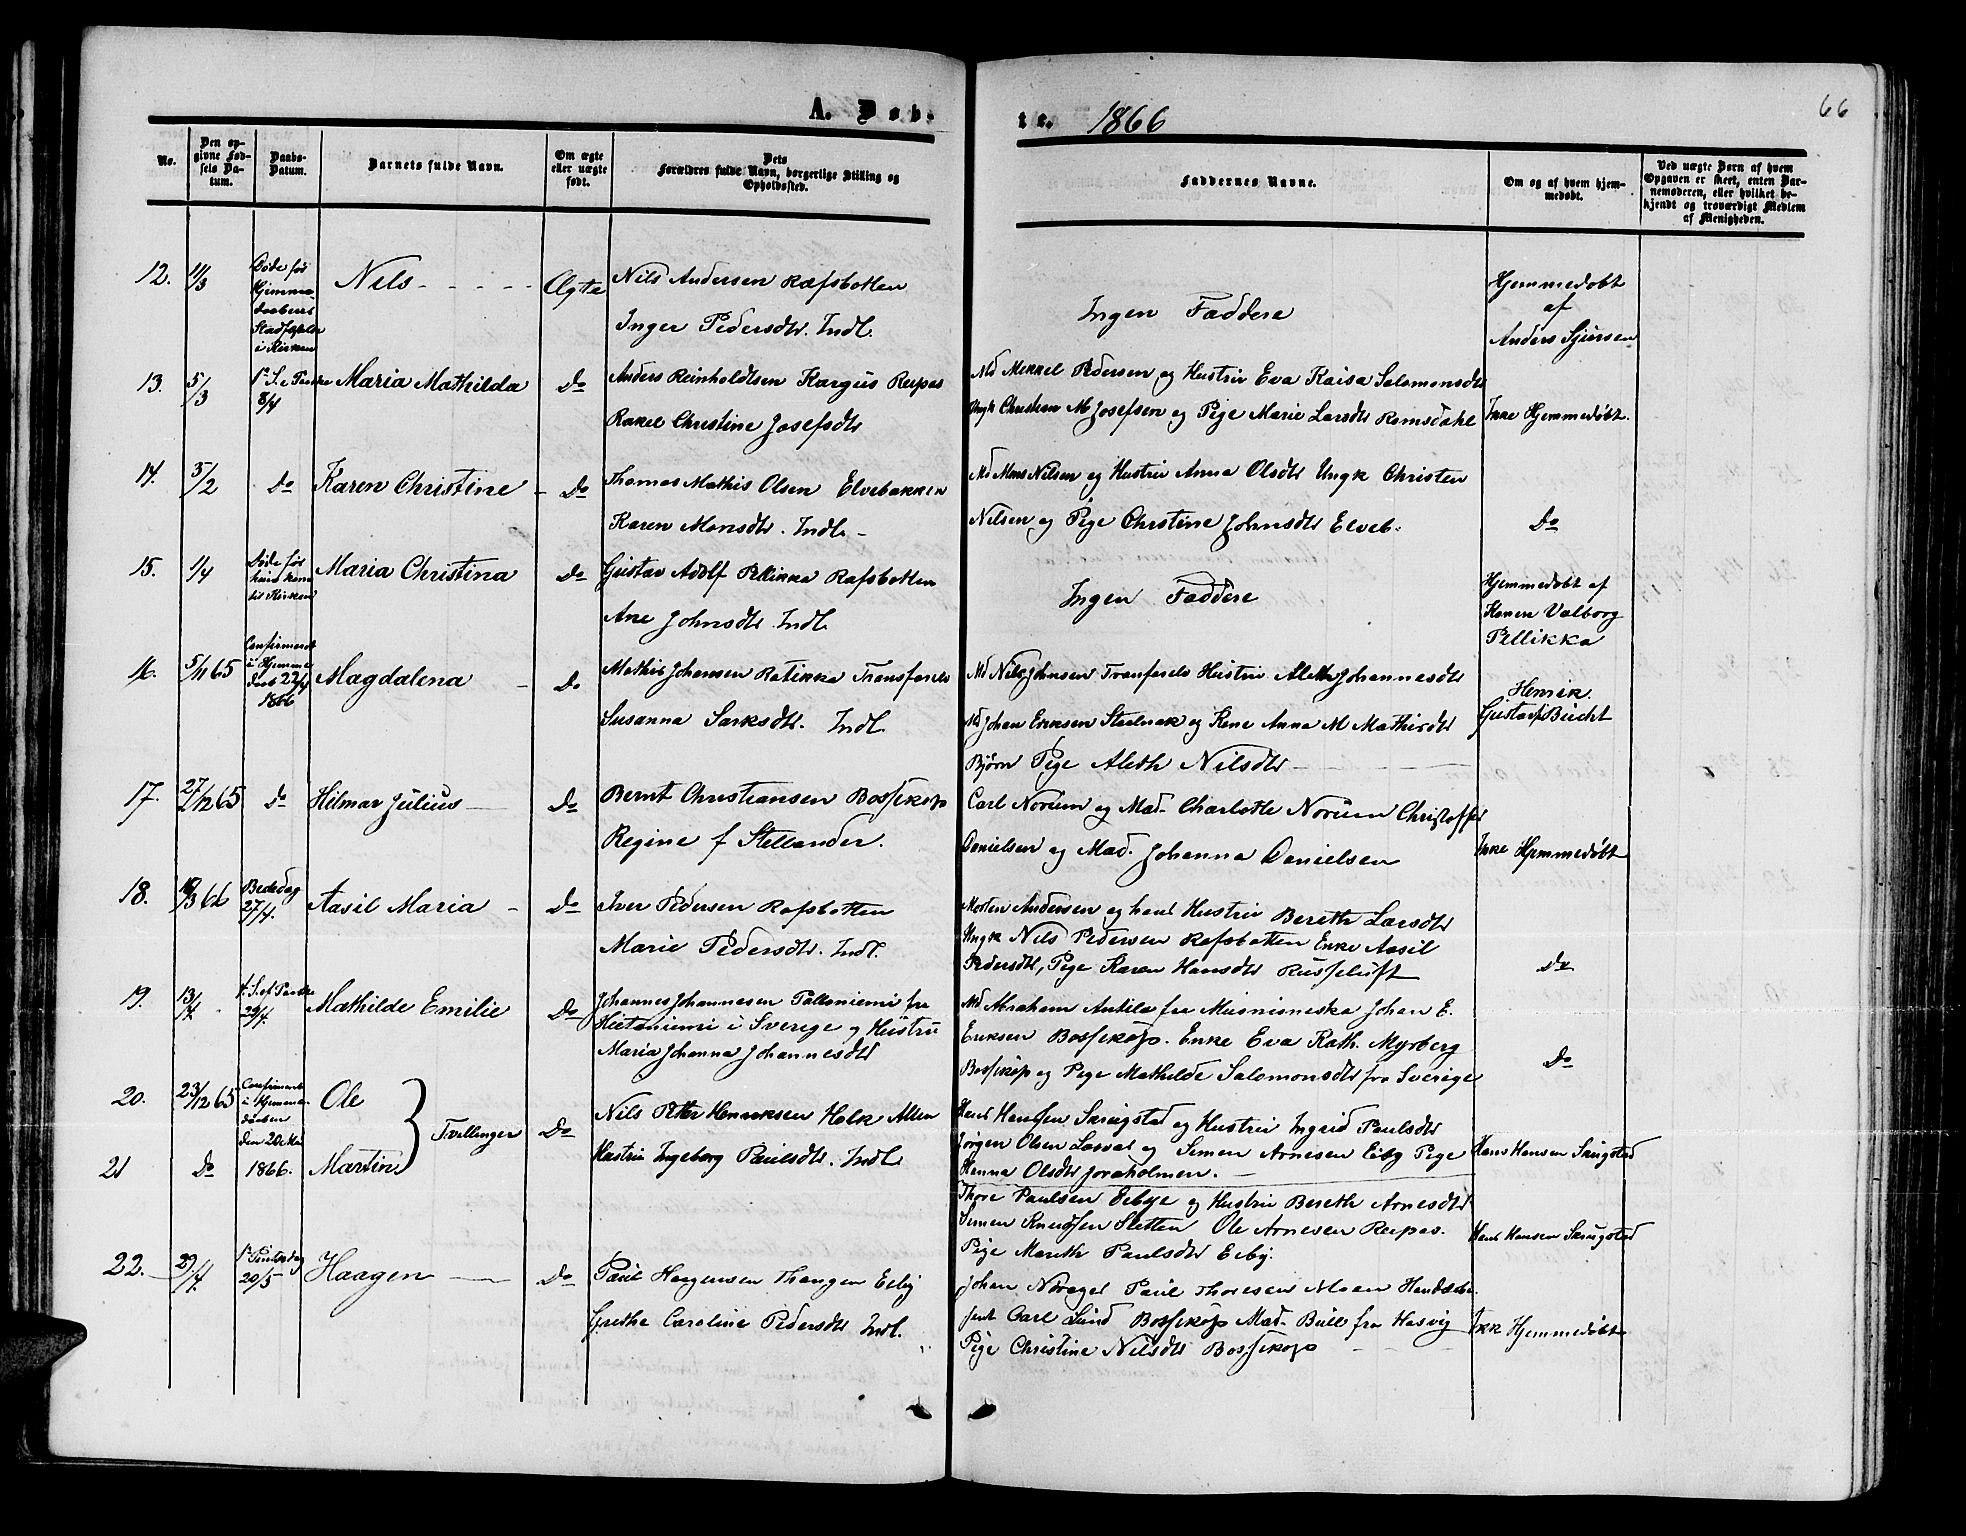 A. Døb-
te. 1866
66
No.
Den op-
givne Fød-
sels Da-
tum.
Daabs-
Datum.
Barnets fulde Navn.
Om ægte
eller uægte
født.
Dets
Forældres fulde Navn, borgerlige Stilling og
Opholdssted.
Faddernes Navne.
Om og af hvem hjem-
medøbt.
Ved uægte Børn af hvem
Opgaven er skeet, enten Bar-
nemoderen, eller hvilket be-
kjendt og troværdigt Medlem
af Menigheden.
12. 11/3
Døde før
Hjemme-
daabens
Stadfæstelse
i Kirken
Nils
Ægte
Nils Andersen Rafsbotten
Inger Pedersdtr. Indl.
Ingen Faddere
Hjemmedøbt
af
Anders Sjursen
13. 5/3
1ste S. e. Paaske
8/4
Maria Mathilda
Do
Anders Reinholdtsen Kargus Reipas
Rakel Christine Josefsdtr
Md Mikkel Pedersen og Hustru Eva Kaisa Salomonsdtr
Ungk Christian M Josefsen og Pige Marie Larsdtr Romsdahl
Ikke Hjemmedøbt.
14. 5/2
Do
Karen Christine
Do
Thomas Mathis Olsen Elvebakken
Karen Monsdtr. Indl
Md Mons Nilsen og Hustru Anna Olsdtr Ungk Christen
Nilsen og Pige Christine Johnsdtr Elveb.
Do
15. 1/4
Døde før
hun kom
til Kirken
Maria Christina
Do
Gustav Adolf Pellikka Rafsbotten
Ane Johnsdtr. Indl
Ingen Faddere
Hjemmedøbt af
Konen Valborg
Pellikka
16. 5/11 65
Confirmeret
i Hjemme
daab 22/4
1866
Magdalena
Do
Mathis Johansen Ratikka Transfarelv
Susanna Larksdtr. Indl.
Md Nils Johnsen Tranfarelv Hustru Aleth Johannesdtr
Md Johan Eriksen Staalnak og Kone Anna M Mathisdtr
Bjørn Pige Aleth Nilsdtr
Henrik
Gustaf Bucht
17. 27/12 65
Do
Hilmar Julius
Do
Bernt Christiansen Bossekop
Regine f Stellander.
Carl Norum og Mad. Charlotte Norum Christoffer
Danielsen og Mad. Johanna Danielsen
Ikke Hjemmedøbt
18. 18/3 66
Bededag
27/4.
Aasil Maria
Do
Iver Pedersen Rafsbotten
Marie Pedersdtr. Indl.
Morten Andersen og hans Hustru Bereth Larsdtr
Ungk Nils Pedersen Rafsbotten Enke Aasil
Pedersdtr, Pige Karen Hansdtr Russeluft
Do
19. 13/4
4. S. ef. Paaske
29/4.
Mathilde Emilie
Do
Johannes Johannesen Palloniemi fra
Hietaniemi i Sverige og Hustru
Maria Johanna Johannesdtr
Md Abraham Antila fra Muonioniska Johan E.
Eriksen Bossekop. Enke Eva Kath. Myrberg
Bossekop og Pige Mathilde Salomonsdtr fra Sverige
Do
20. 23/12 65
Confirmeret
i Hjemme-
daaben
den 20 Mai
1866.
Ole
Tvillinger
Do
Nils Peter Henriksen Holk Alten
Hustru Ingeborg Paulsdtr. Indl
Hans Hansen Skrugstad og Hustru Ingrid Paulsdtr
Jørgen Olsen Lasvat og Simen Arnesen Eiby Pige
Hanna Olsdtr Joraholmen.
Hans Hansen Skrugstad
21 Do
Martin
Thore Paulsen Eibye og Hustru Bereth Arnesdtr
Simen Knudsen Sletten Ole Arnesen Reipas.
Pige Mareth Paulsdtr Eiby.
Hans Hansen Skrugstad
22. 29/4.
1ste Pintsedag
20/5
Haagen
Do
Paul Haagensen Thangen Eiby
Grethe Caroline Pedersdtr Indl.
Johan Norager Paul Thoresen Moen Handelsbe-
tjent Carl Lund Bossekop Mad. Bull fra Hasvig
Pige Christine Nilsdtr Bossekop
Ikk Hjemmedøbt